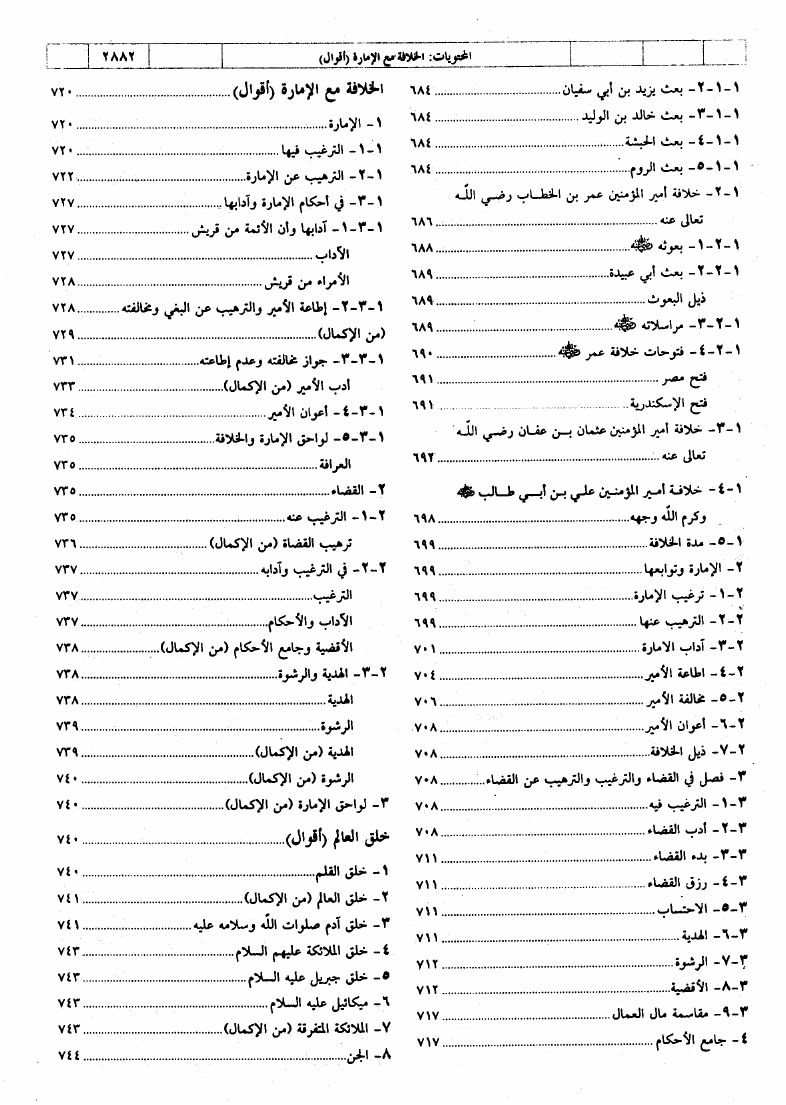 المحتويات: الخلافة مع الإمارة (أقوال)
٢٨٨٢
١-١-٢- بعث يزيد بن أبي سفيان ٦٨٤
١-١-٣- بعث خالد بن الوليد ٦٨٤
١-١-٤- بعث الحبشة ٦٨٤
١-١-٥- بعث الروم ٦٨٤
١-٢- خلافة أمير المؤمنين عمر بن الخطاب رضي اللّه
تعالى عنه ٦٨٦
١-٢-١- بعوثه ﷺ ٦٨٨
١-٢-٢- بعث أبي عبيدة ٦٨٩
ذيل البعوث ٦٨٩
١-٢-٣- مراسلاته ٦٨٩
١-٢-٤- فتوحات خلافة عمر ٦٩٠
فتح مصر ٦٩١
فتح الإسكندرية ٦٩١
١-٣- خلافة أمير المؤمنين عثمان بن عفان رضي اللّه
تعالى عنه ٦٩٢
١-٤- خلافة أمير المؤمنين علي بن أبي طالب
وكرم اللّه وجهه ٦٩٨
١-٥- مدة الخلافة ٦٩٩
٢- الإمارة وتوابعها ٦٩٩
٢-١- ترغيب الإمارة ٦٩٩
٢-٢- الترهيب عنها ٦٩٩
٢-٣- آداب الامارة ٧٠١
٢-٤- اطاعة الأمير ٧٠٤
٢-٥- مخالفة الأمير ٧٠٦
٢-٦- أعوان الأمير ٧٠٨
٢-٧- ذيل الخلافة ٧٠٨
٣- فصل في القضاء والترغيب والترهيب عن القضاء ٧٠٨
٣-١- الترغيب فيه ٧٠٨
٣-٢- أدب القضاء ٧٠٨
٣-٣- بدء القضاء ٧١١
٣-٤- رزق القضاء ٧١١
٣-٥- الاحتساب ٧١١
٣-٦- الهدية ٧١١
٣-٧- الرشوة ٧١٢
٣-٨- الأقضية ٧١٢
٣-٩- مقاسمة مال العمال ٧١٧
٤- جامع الأحكام ٧١٧
الخلافة مع الإمارة (أقوال) ٧٢٠
١- الإمارة ٧٢٠
١-١- الترغيب فيها ٧٢٠
١-٢- الترهيب عن الإمارة ٧٢٢
١-٣- في أحكام الإمارة وآدابها ٧٢٧
١-٣-١- آدابها وأن الأئمة من قريش ٧٢٧
الآداب ٧٢٧
الأمراء من قريش ٧٢٨
١-٣-٢- إطاعة الأمير والترهيب عن البغي ومخالفته ٧٢٨
(من الإكمال) ٧٢٩
١-٣-٣- جواز مخالفته وعدم إطاعته ٧٣١
أدب الأمير (من الإكمال) ٧٣٣
١-٣-٤- أعوان الأمير ٧٣٤
١-٣-٥- لواحق الإمارة والخلافة ٧٣٥
العرافة ٧٣٥
٢- القضاء ٧٣٥
٢-١- الترغيب عنه ٧٣٥
ترهيب القضاة (من الإكمال) ٧٣٦
٢-٢- في الترغيب وآدابه ٧٣٧
الترغيب ٧٣٧
الآداب والأحكام ٧٣٧
الأقضية وجامع الأحكام (من الإكمال) ٧٣٨
٢-٣- الهدية والرشوة ٧٣٨
الهدية ٧٣٨
الرشوة ٧٣٩
الهدية (من الإكمال) ٧٣٩
الرشوة (من الإكمال) ٧٤٠
٣- لواحق الإمارة (من الإكمال) ٧٤٠
خلق العالم (أقوال) ٧٤٠
١- خلق القلم ٧٤٠
٢- خلق العالم (من الإكمال) ٧٤١
٣- خلق آدم صلوات اللّه وسلامه عليه ٧٤١
٤- خلق الملائكة عليهم السلام ٧٤٣
٥- خلق جبريل عليه السلام ٧٤٣
٦- ميكائيل عليه السلام ٧٤٣
٧- الملائكة المتفرقة (من الإكمال) ٧٤٣
٨- الجن ٧٤٤